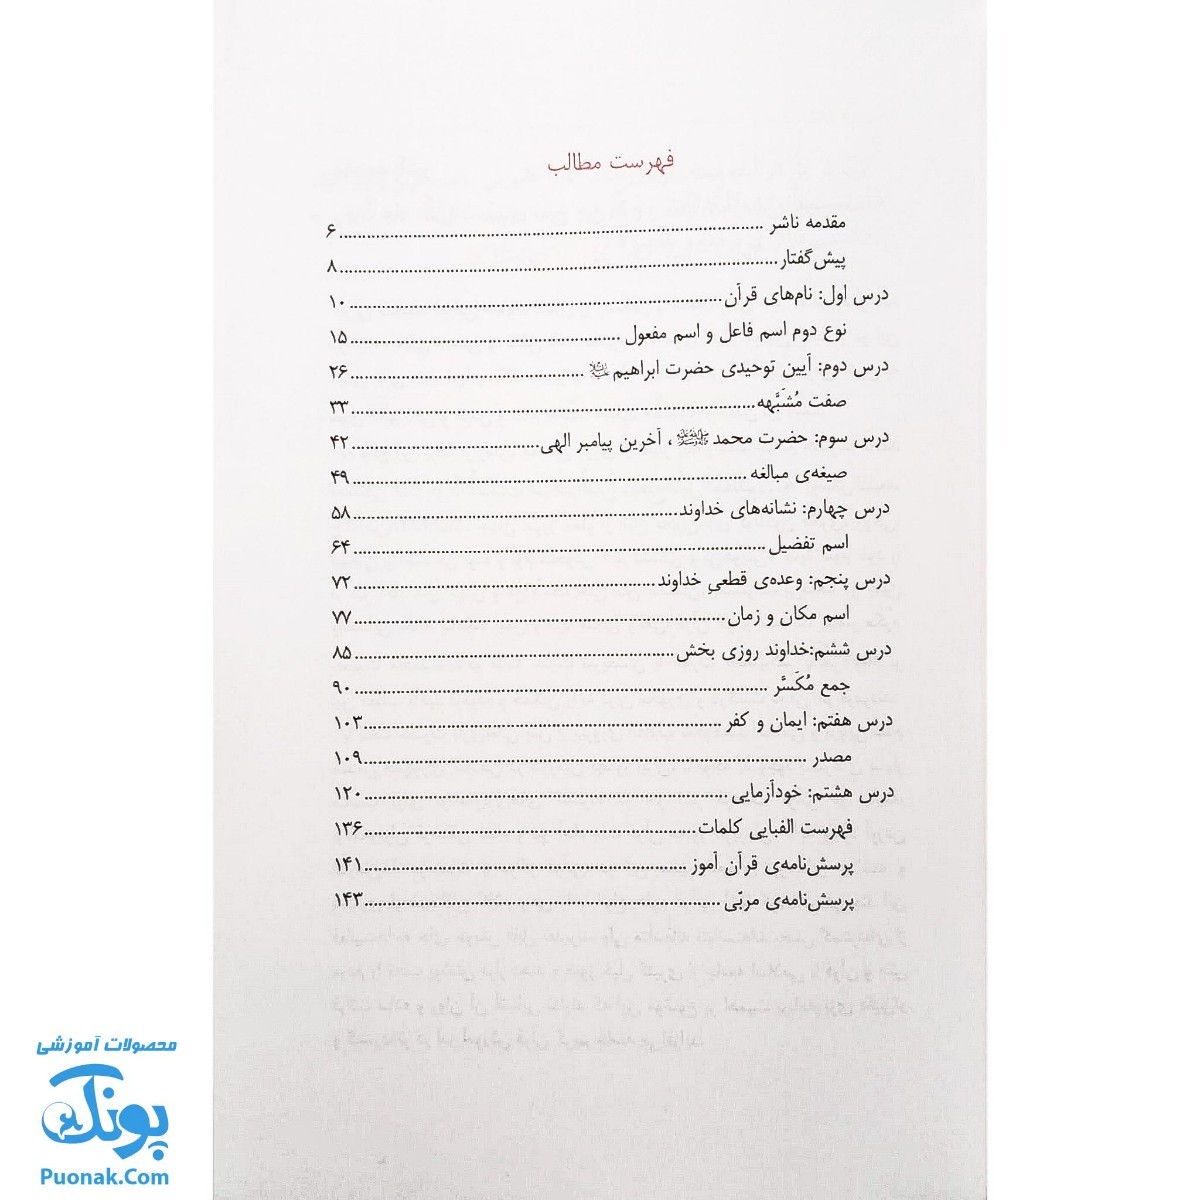 فهرست مطالب
مقدمه ناشر ........ ۶
پیش‌گفتار ........ ۸
درس اول: نام‌های قرآن ........ ۱۰
نوع دوم اسم فاعل و اسم مفعول ........ ۱۵
درس دوم: آیین توحیدی حضرت ابراهیم ........ ۲۶
صفت مُشَبَّهه ........ ۳۳
درس سوم: حضرت محمد ﷺ، آخرین پیامبر الهی ........ ۴۲
صیغه‌ی مبالغه ........ ۴۹
درس چهارم: نشانه‌های خداوند ........ ۵۸
اسم تفضیل ........ ۶۴
درس پنجم: وعده‌ی قطعیِ خداوند ........ ۷۲
اسم مکان و زمان ........ ۷۷
درس ششم:خداوند روزی بخش ........ ۸۵
جمع مُکَسَّر ........ ۹۰
درس هفتم: ایمان و کفر ........ ۱۰۳
مصدر ........ ۱۰۹
درس هشتم: خودآزمایی ........ ۱۲۰
فهرست الفبایی کلمات ........ ۱۳۶
پرسش‌نامه‌ی قرآن آموز ........ ۱۴۱
پرسش‌نامه‌ی مربّی ........ ۱۴۳
محصولات آموزشی
پونک
Puonak.Com